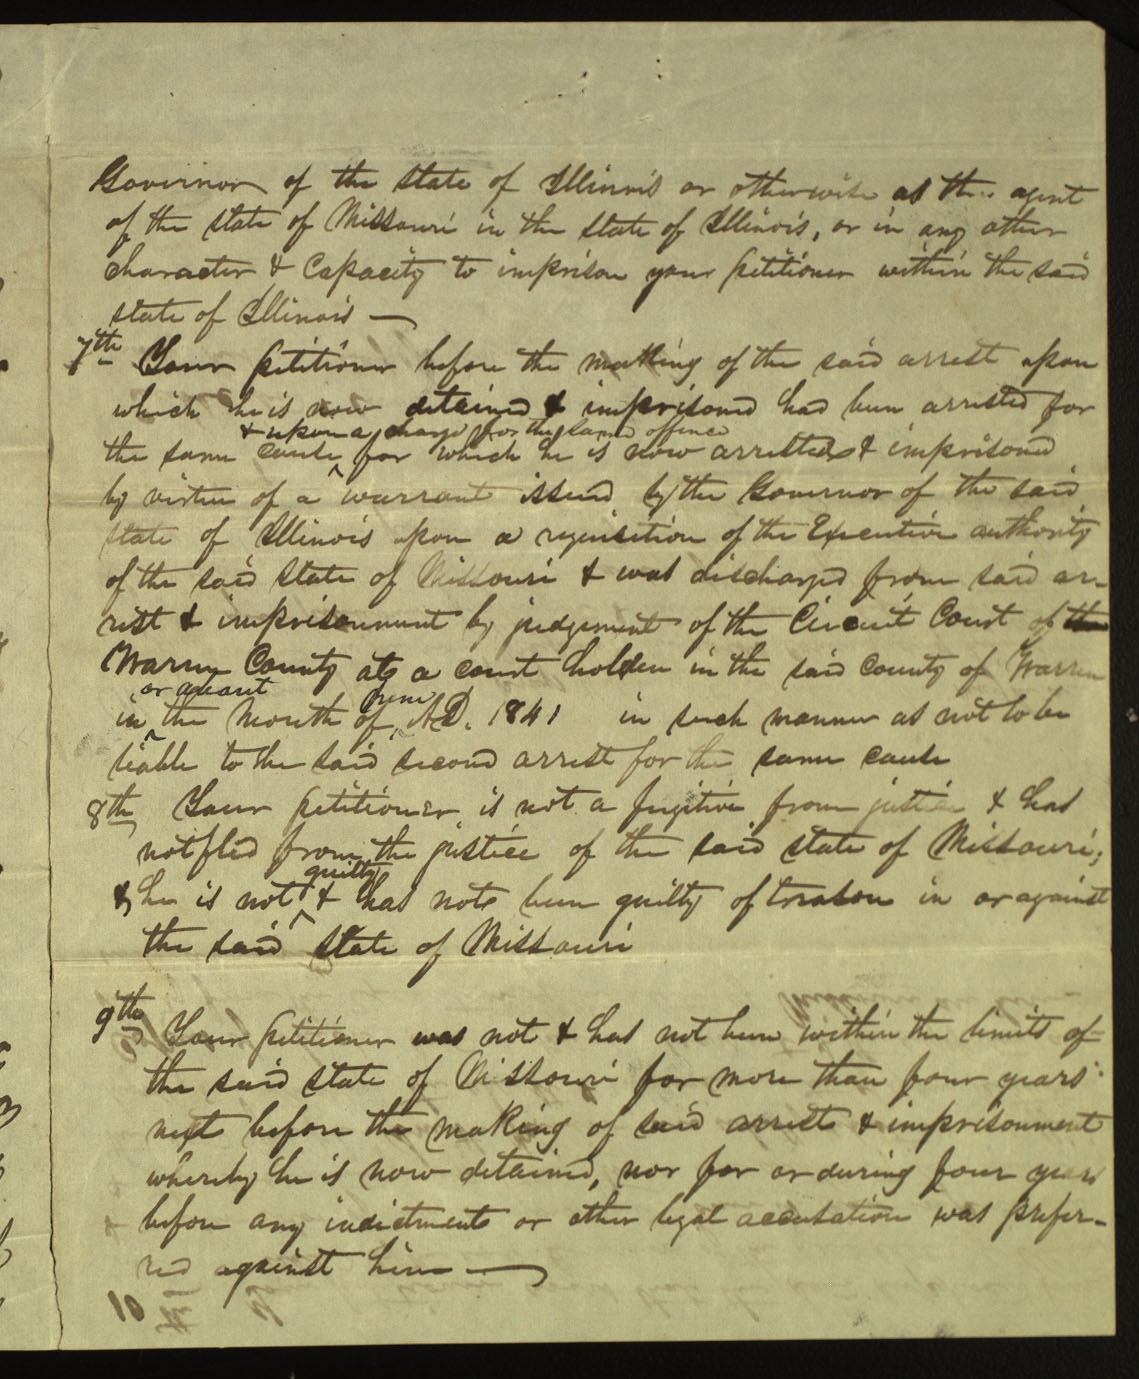 Governor of the state of Illinois or otherwise as the agent
of the state of Missouri in the state of Illinois, or in any other
character & capacity to imprison your petitioner within the said
state of Illinois —
7th Your petitioner before the making of the said arrest upon
which he is now detained & imprisoned had been arrested for
& upon a charge for the same offence
the same cause ^ for which he is now arrested & imprisoned
by virtue of a warrant issued by the Governor of the said
state of Illinois upon a requisition of the Executive authority
of the said state of Missouri & was discharged from said ar-
rest & imprisonment by judgement of the Circuit Court of the
Warren County at a court holden in the said county of Warren
or about June
in ^ the month of ^ A.D. 1841 in such manner as not to be
liable to the said second arrest for the same cause
8th Your petitioner is not a fugitive from justice & has
not fled from the justice of the said state of Missouri;
guilty
& he is not ^ & has not been guilty of treason in or against
the said state of Missouri
9th Your petitioner was not & has not been within the limits of
the said state of Missouri for more than four years
next before the making of said arrest & imprisonment
whereby he is now detained, nor for or during four years
before any indictment or other legal accusation was prefer-
red against him —
10